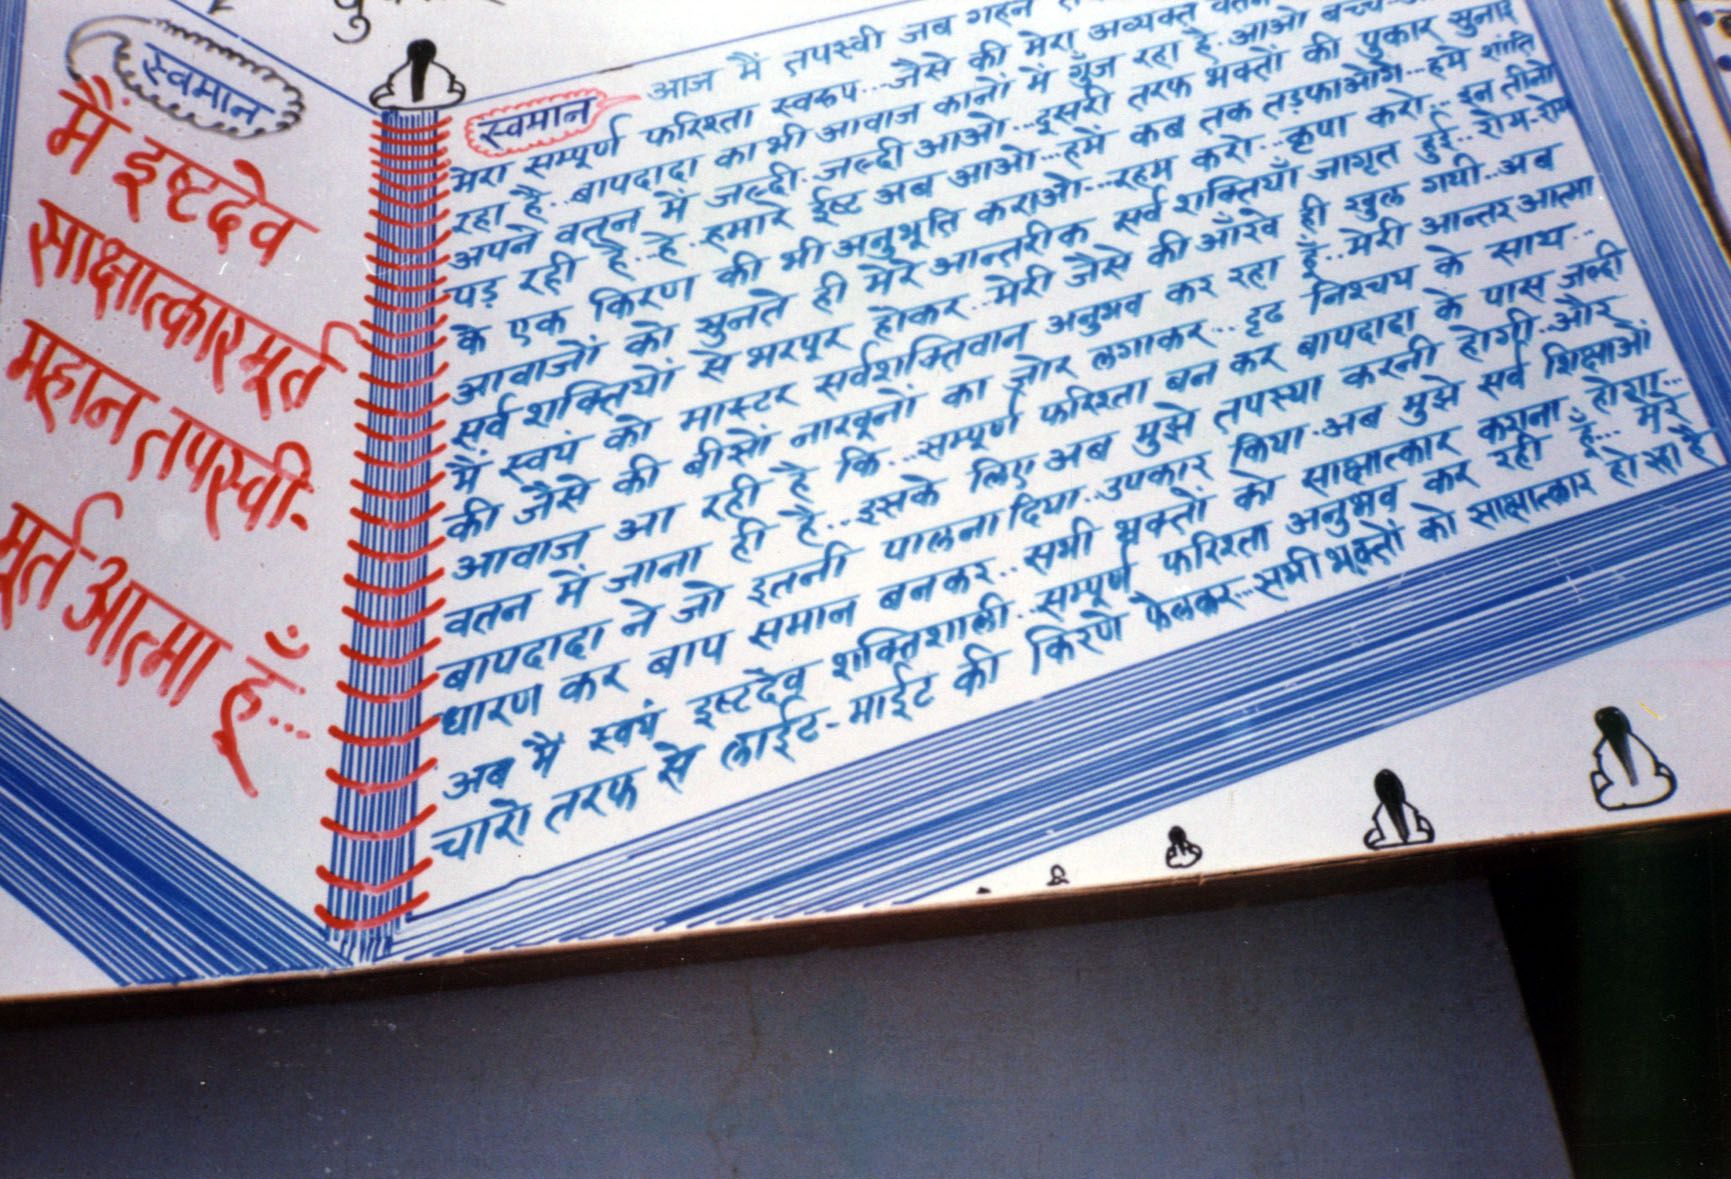 स्वमान
मैं इष्टदेव
साक्षात्कारमूर्त
महान तपस्वी-
मूर्त आत्मा हूँ...
स्वमान
आज मैं तपस्वी जब गहन
मेरा सम्पूर्ण फरिश्ता स्वरूप...जैसे की मेरा अव्यक्त वतन
रहा है..बापदादा का भी आवाज कानों में गूँज रहा है.आओ बच्चे
अपने वतन में जल्दी.जल्दी आओ...दूसरी तरफ भक्तों की पुकार सुनाई
पड़ रही है..हे.हमारे ईष्ट अब आओ...हमें कब तक तड़फाओगे...हमे शांति
के एक किरण की भी अनुभूति कराओ...रहम करो...कृपा करो...इन तीनो
आवाजों को सुनते ही मेरे आन्तरीक सर्व शक्तियाँ जागृत हुई..रोम-रोम
सर्व शक्तियों से भरपूर होकर..मेरी जैसे की आँखे ही खुल गयी..अब
मैं स्वयं को मास्टर सर्वशक्तिवान अनुभव कर रहा हूँ..मेरी आन्तर आत्मा
की जैसे की बीसों नाखूनों का जोर लगाकर...दृढ निश्चय के साथ..
आवाज आ रही है कि...सम्पूर्ण फरिश्ता बन कर बापदादा के पास जल्दी
वतन में जाना ही है...इसके लिए अब मुझे तपस्या करनी होगी.और
बापदादा ने जो इतनी पालना दिया..उपकार किया.अब मुझे सर्व शिक्षाओं
धारण कर बाप समान बनकर..सभी भक्तों को साक्षात्कार कराना होगा...
अब मैं स्वयं इष्टदेव शक्तिशाली..सम्पूर्ण फरिश्ता अनुभव कर रही हूँ... मेरे
चारो तरफ से लाईट-माईट की किरणे फैलकर...सभी भक्तों को साक्षात्कार हो रहा है